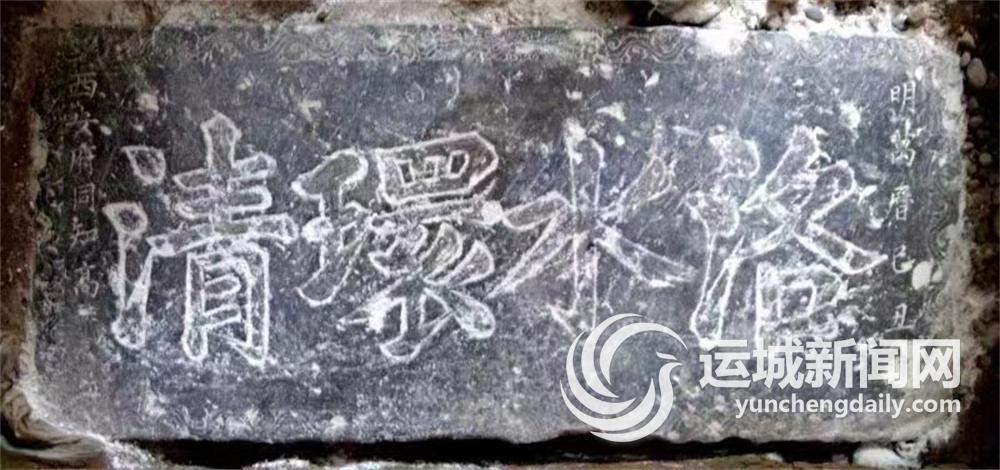 明萬曆己丑
澮水環清
西安府同知高
运城新闻网
yunchengdaily.com